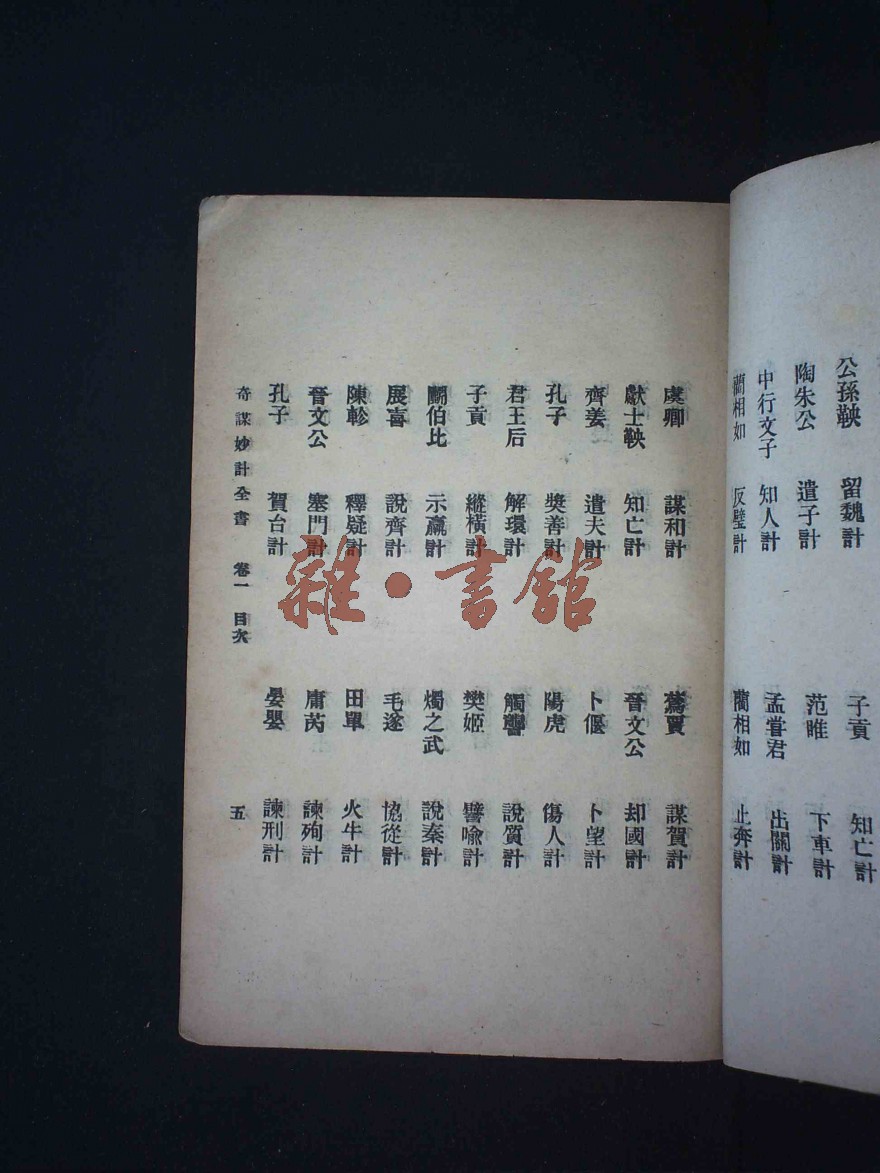 公孫鞅 留魏計 子貢 知亡計
陶朱公 遣子計 范雎 下車計
中行文子 知人計 孟嘗君 出關計
藺相如 反璧計 藺相如 止奔計
虞卿 謀和計 蔿賈 謀賀計
獻士鞅 知亡計 晉文公 却國計
齊姜 遣夫計 卜偃 卜望計
孔子 獎善計 陽虎 傷人計
君王后 解環計 觸讋 說質計
子貢 縱橫計 樊姬 譬喻計
鬭伯比 示羸計 燭之武 說秦計
展喜 說齊計 毛遂 協從計
陳軫 釋疑計 田單 火牛計
晉文公 塞門計 庸芮 諫殉計
孔子 賀台計 晏嬰 諫刑計
奇謀妙計全書 卷一 目次 五
雜·書館